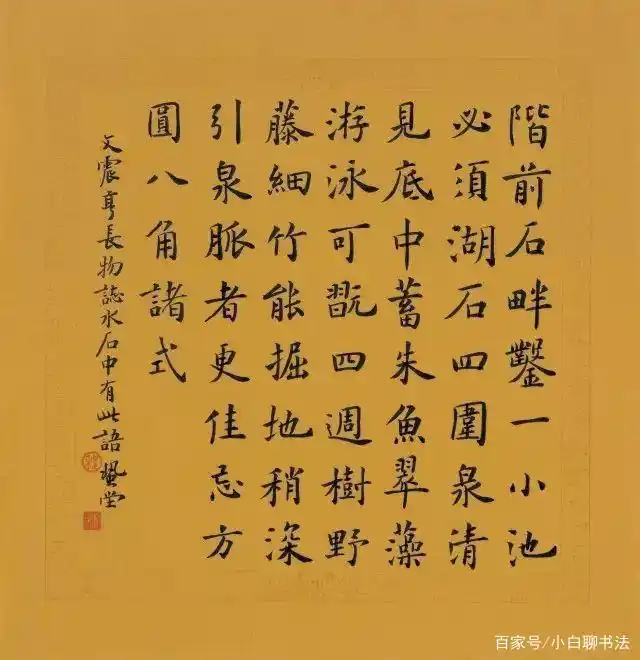 階前石畔鑿一小池
必須湖石四圍泉清
見底中蓄朱魚翠藻
游泳可翫四週樹野
藤細竹能掘地稍深
引泉脈者更佳忌方
圓八角諸式
文震亨長物誌水石中有此語
百家号/小白聊书法